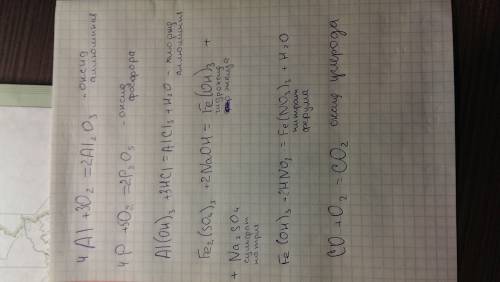 4Al + 3O2 = 2Al2O3 - оксид алюминия
4P + 5O2 = 2P2O5 - оксид фосфора
Al(OH)3 + 3HCl = AlCl3 + H2O - хлорид алюминия
Fe2(SO4)3 + 2NaOH = Fe(OH)3 +
гидроксид железа
+ Na2SO4
сульфат натрия
Fe(OH)3 + 2HNO3 = Fe(NO3)2 + H2O
нитрат ферума
CO + O2 = CO2 оксид углерода